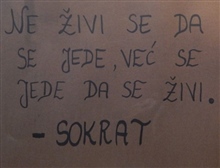 NE ŽIVI SE DA
SE JEDE, VEĆ SE
JEDE DA SE ŽIVI.
- SOKRAT